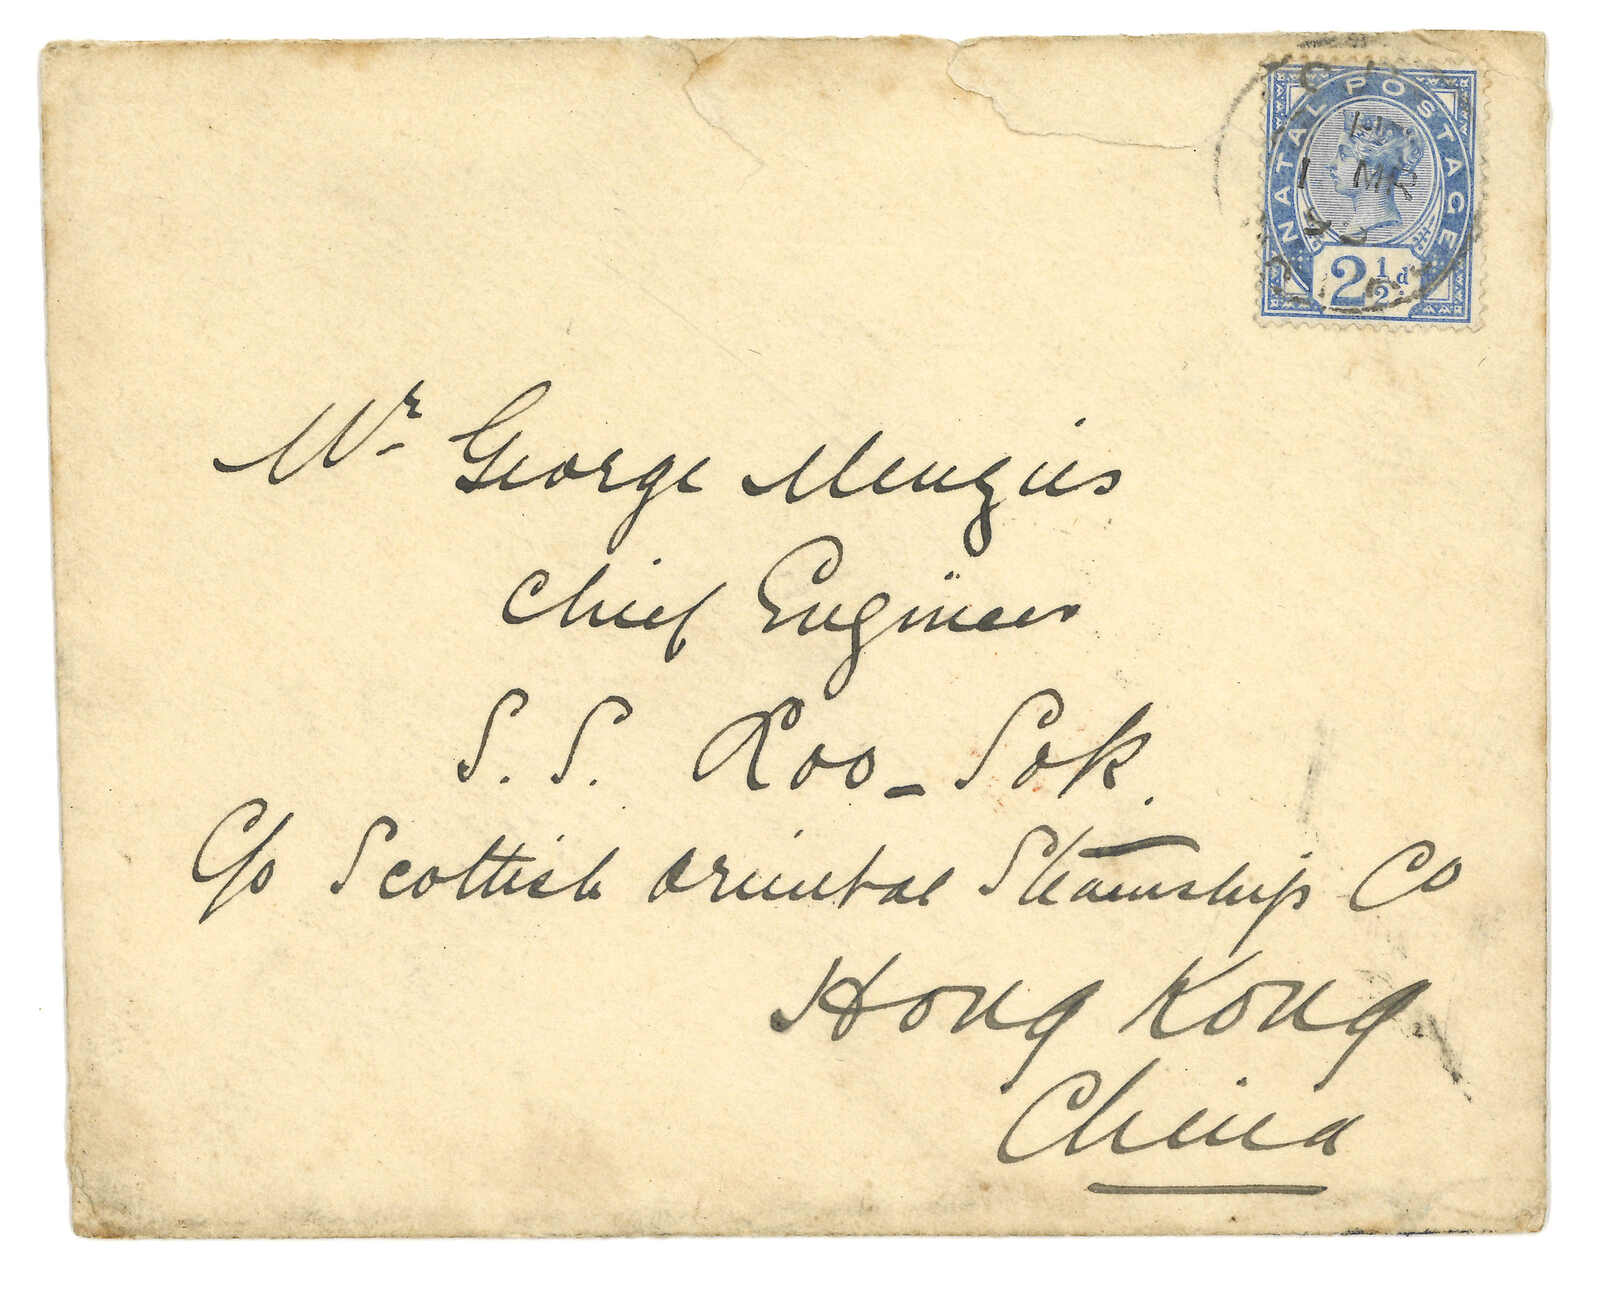 NATAL POSTAGE
1 MR
2½d
Mr George Menzies
Chief Engineer
S. S. Roo-Sok.
C/o Scottish Oriental Steamship Co
Hong Kong
China